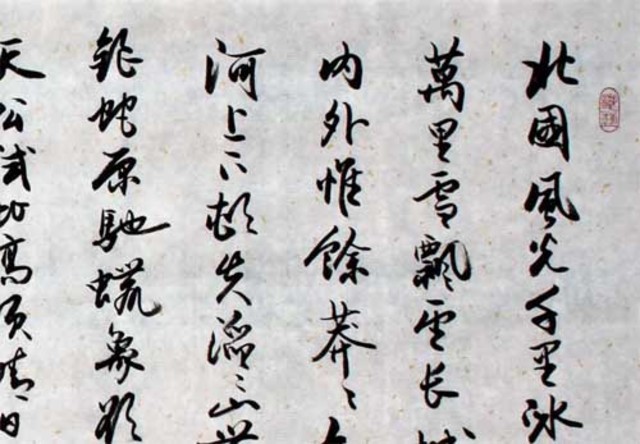 北國風光千里冰
萬里雪飄望長城
内外惟餘莽〻
河上下頓失滔〻山
銀蛇原馳蠟象欲
天公試比高須晴日